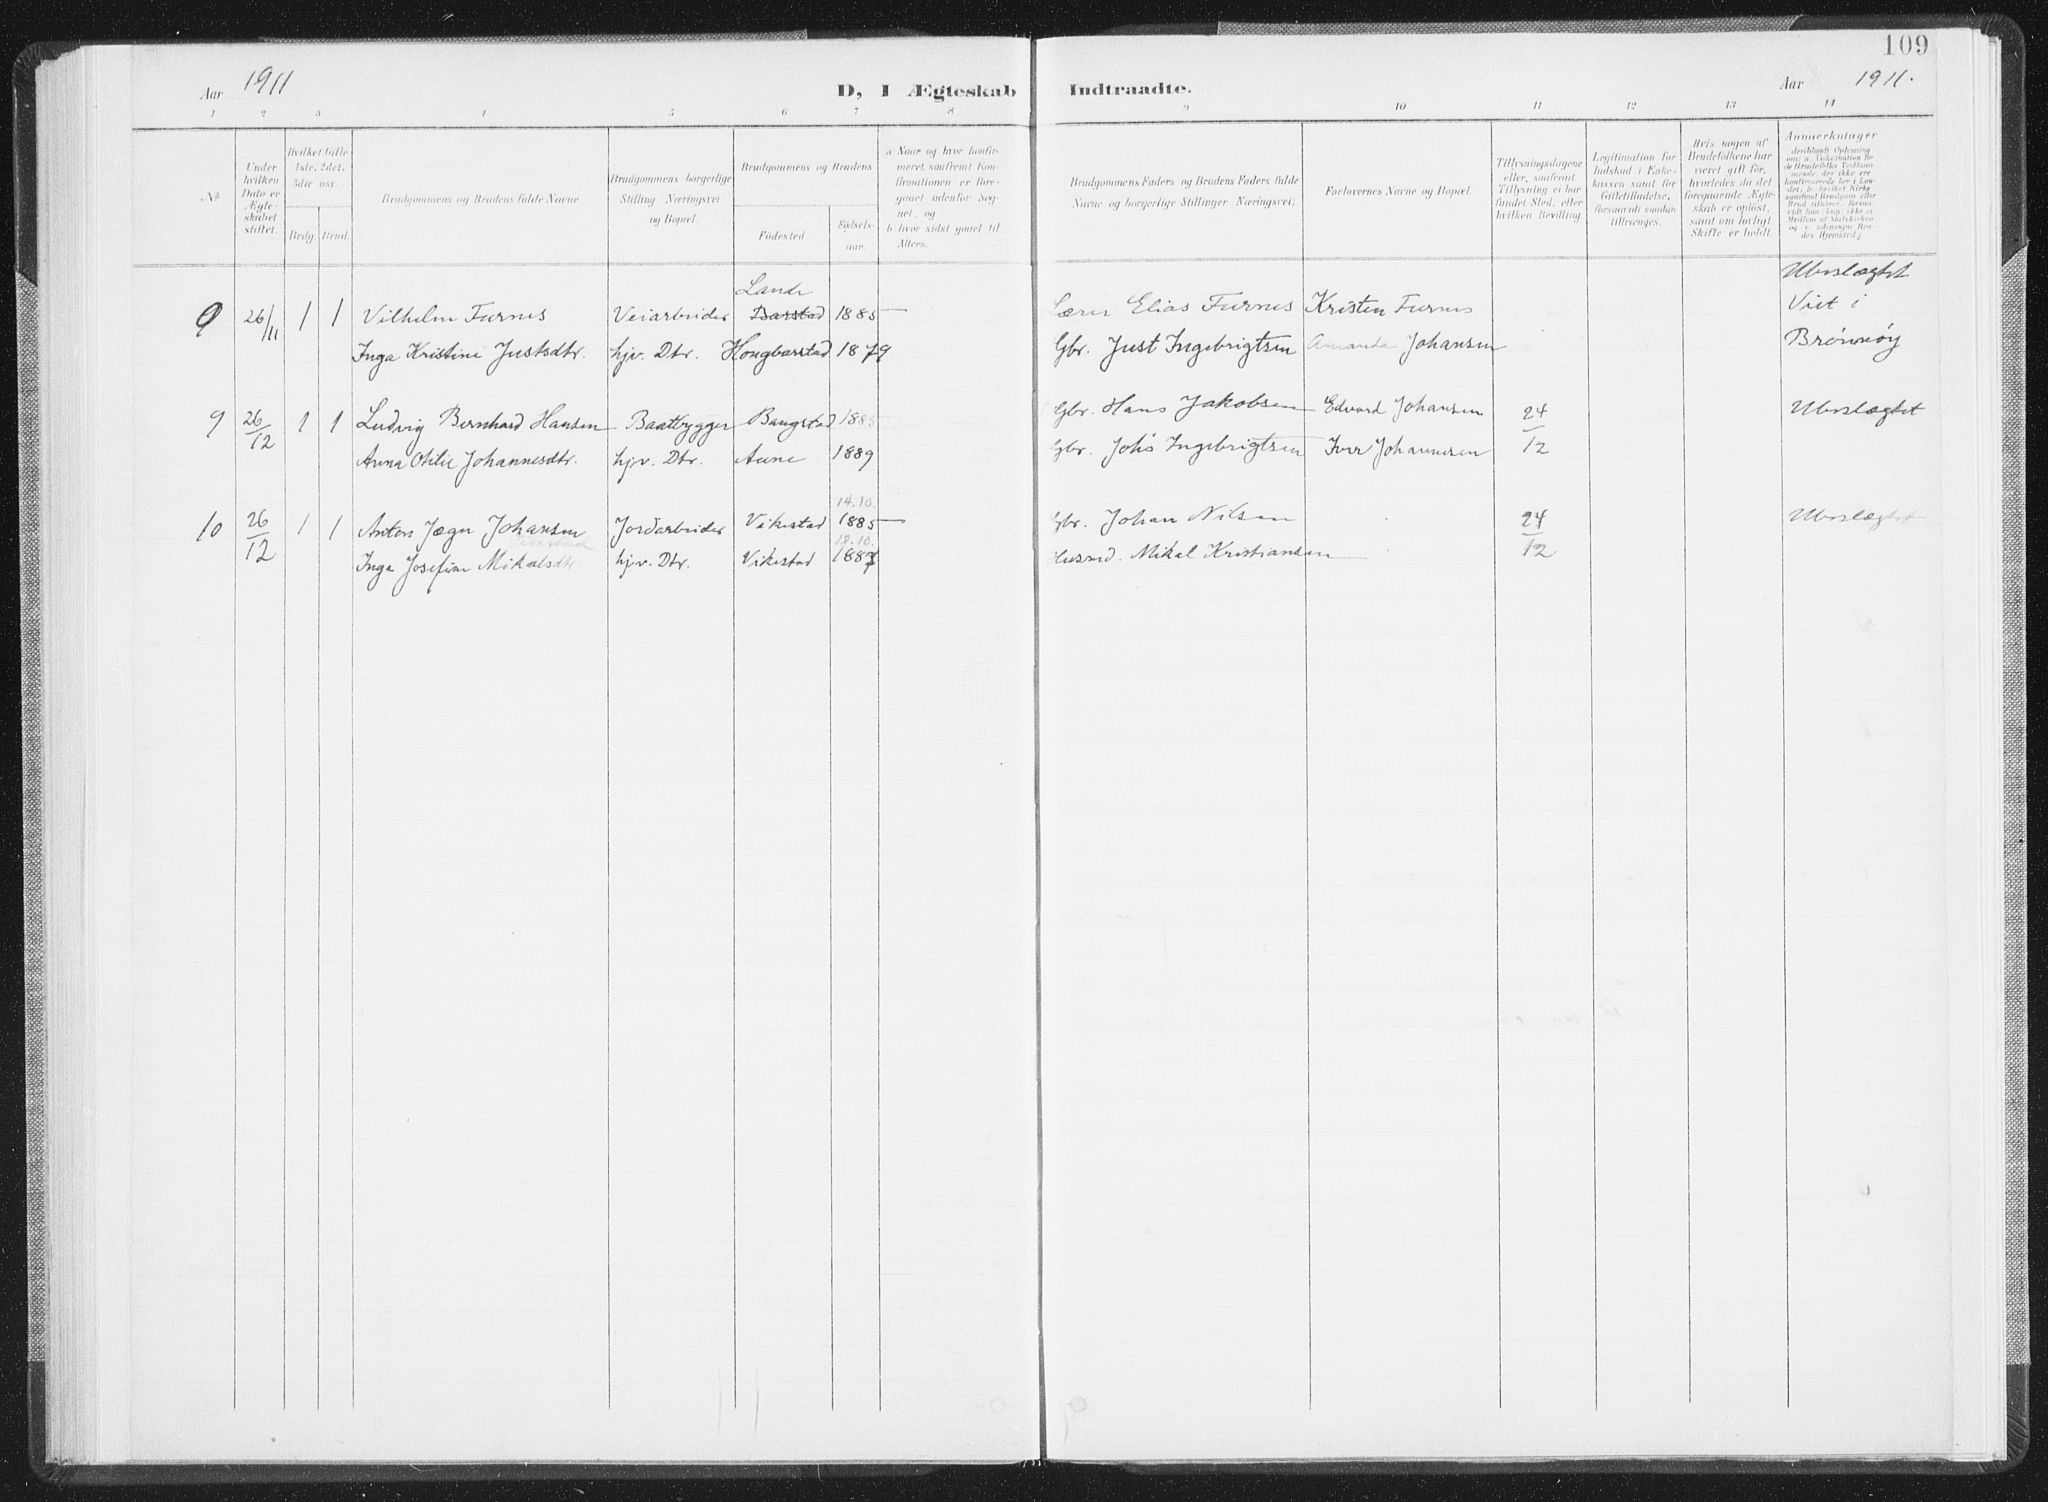 109
Aar 1911
D, I Ægteskab Indtraadte.
Aar 1911.
1 2 3 4 5 6 7 8 9 10 11 12 13 14
No
Under hvilken Dato er Ægteskabet stiftet.
Hvilket Gifte 1ste, 2det, 3die osv.
Brdg. Brud.
Brudgommens og Brudens fulde Navne
Brudgommens borgerlige Stilling Næringsvei og Bopæl.
Brudgommens og Brudens
Fødested. Fødselsaar.
a Naar og hvor konfirmeret, saafremt Konfirmationen er foregaaet udenfor Sognet, og
b hvor sidst gaaet til Alters.
Brudgommens Faders og Brudens Faders fulde Navne og borgerlige Stillinger Næringsvei,
Forlovernes Navne og Bopæl.
Tillysningsdagene eller, saafremt Tillysning ei har fundet Sted, efter hvilken Bevilling.
Legitimation for Indskud i Enkekassen samt for Giftetilladelse, forsaavidt saadan tiltrænges.
Hvis nogen af Brudefolkene har været gift før, hvorledes da det foregaaende Ægteskab er opløst, samt om lovligt Skifte er holdt.
Anmerkninger
Ubeslægtet
Lande
9 26/11 1 1 Vilhelm Furnes Veiarbeider Barstad 1885 — Lærer Elias Furnes Kristen Furnes Viet i
Inga Kristine Justsdtr. hjv. Dtr. Hongbarstad 1879 Gbr. Just Ingebrigtsen Amanda Johansen Brønnøy
9 26/12 1 1 Ludvig Bernhard Hansen Baatbygger Bangstad 1885 Gbr. Hans Jakobsen Edvard Johansen 24/12 Ubeslægtet
Anna Otilie Johannesdtr. hjv. Dtr. Aune 1889 Gbr. Johs Ingebrigtsen Iver Johannesen
14.10.
10 26/12 1 1 Anton Jæger Johansen Jordarbeider Vikestad 1885 — Gbr. Johan Nilsen 24/12 Ubeslægtet
Vikestad 18.10.
Inga Josefine Mikalsdtr hjv. Dtr. Vikestad 1887 Husmd. Mikal Kristiansen —